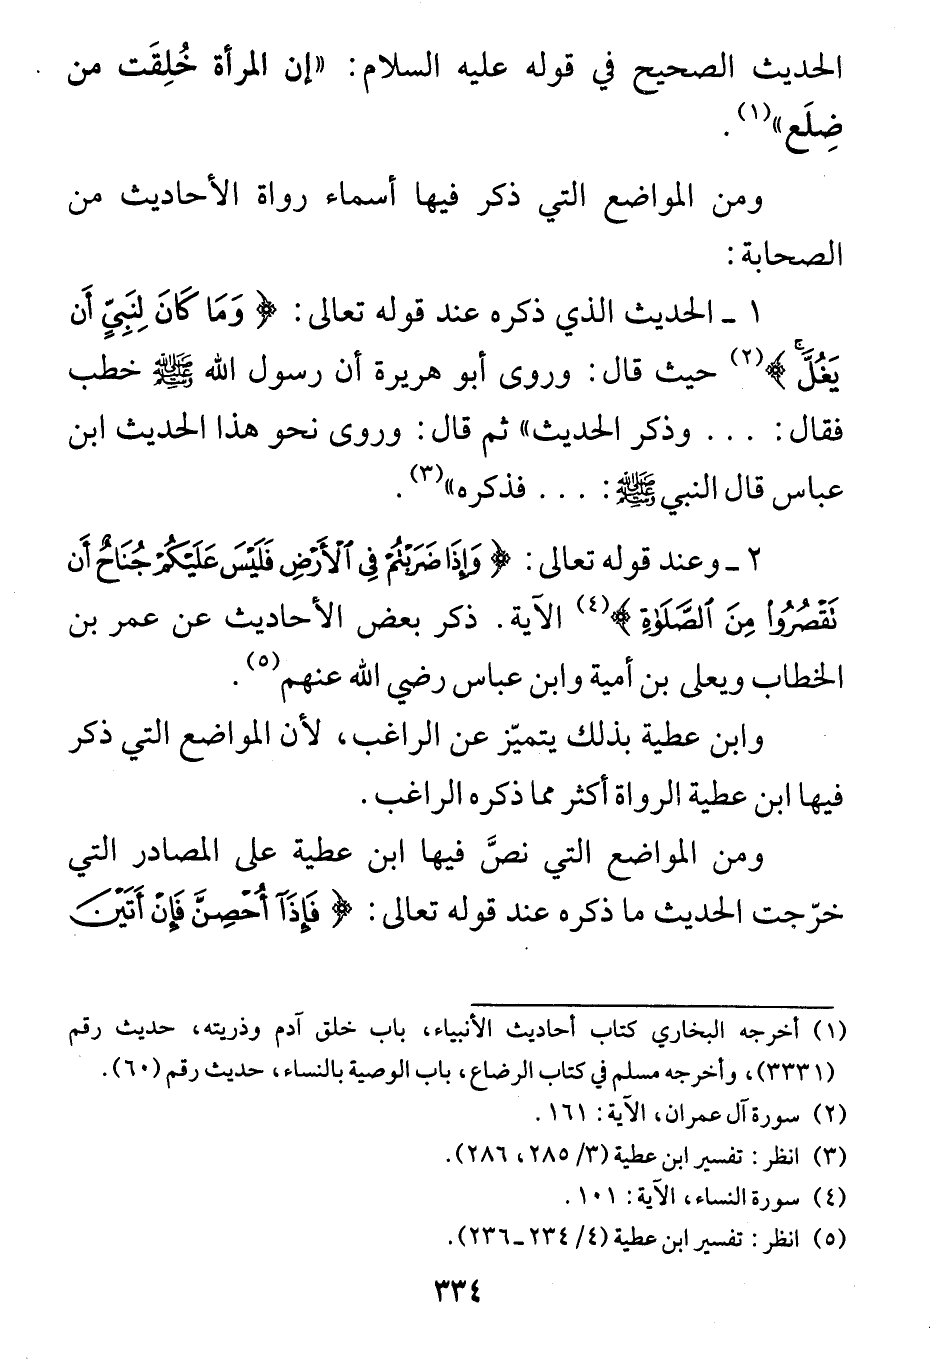 الحديث الصحيح في قوله عليه السلام: «إن المرأة خُلِقَت من
ضِلَع»(١).
ومن المواضع التي ذكر فيها أسماء رواة الأحاديث من
الصحابة:
١ ـ الحديث الذي ذكره عند قوله تعالى: ﴿ وَمَا كَانَ لِنَبِيٍّ أَن
يَغُلَّۚ ﴾(٢) حيث قال: وروى أبو هريرة أن رسول الله ﷺ خطب
فقال: ... وذكر الحديث» ثم قال: وروى نحو هذا الحديث ابن
عباس قال النبي ﷺ: ... فذكره»(٣).
٢ ـ وعند قوله تعالى: ﴿ وَإِذَا ضَرَبْتُمْ فِي ٱلْأَرْضِ فَلَيْسَ عَلَيْكُمْ جُنَاحٌ أَن
نَقْصُرُوا۟ مِنَ ٱلصَّلَوٰةِ ﴾(٤) الآية. ذكر بعض الأحاديث عن عمر بن
الخطاب ويعلى بن أمية وابن عباس رضي الله عنهم(٥).
وابن عطية بذلك يتميّز عن الراغب، لأن المواضع التي ذكر
فيها ابن عطية الرواة أكثر مما ذكره الراغب.
ومن المواضع التي نصَّ فيها ابن عطية على المصادر التي
خرّجت الحديث ما ذكره عند قوله تعالى: ﴿ فَإِذَآ أُحْصِنَّ فَإِنْ أَتَيْنَ
(١) أخرجه البخاري كتاب أحاديث الأنبياء، باب خلق آدم وذريته، حديث رقم
(٣٣٣١)، وأخرجه مسلم في كتاب الرضاع، باب الوصية بالنساء، حديث رقم (٦٠).
(٢) سورة آل عمران، الآية: ١٦١.
(٣) انظر: تفسير ابن عطية (٣/ ٢٨٥، ٢٨٦).
(٤) سورة النساء، الآية: ١٠١.
(٥) انظر: تفسير ابن عطية (٤/ ٢٣٤ـ٢٣٦).
٣٣٤